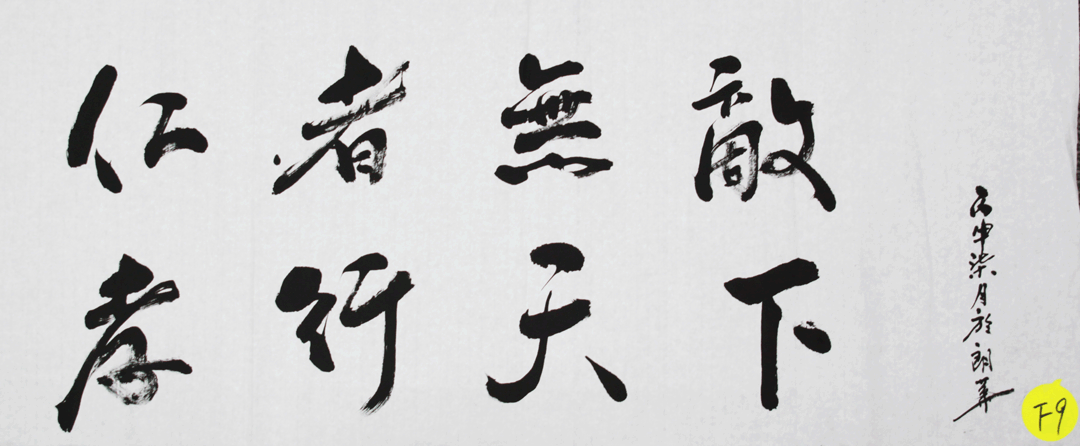 仁者無敵
孝行天下
丙申柒月於朗華
F9